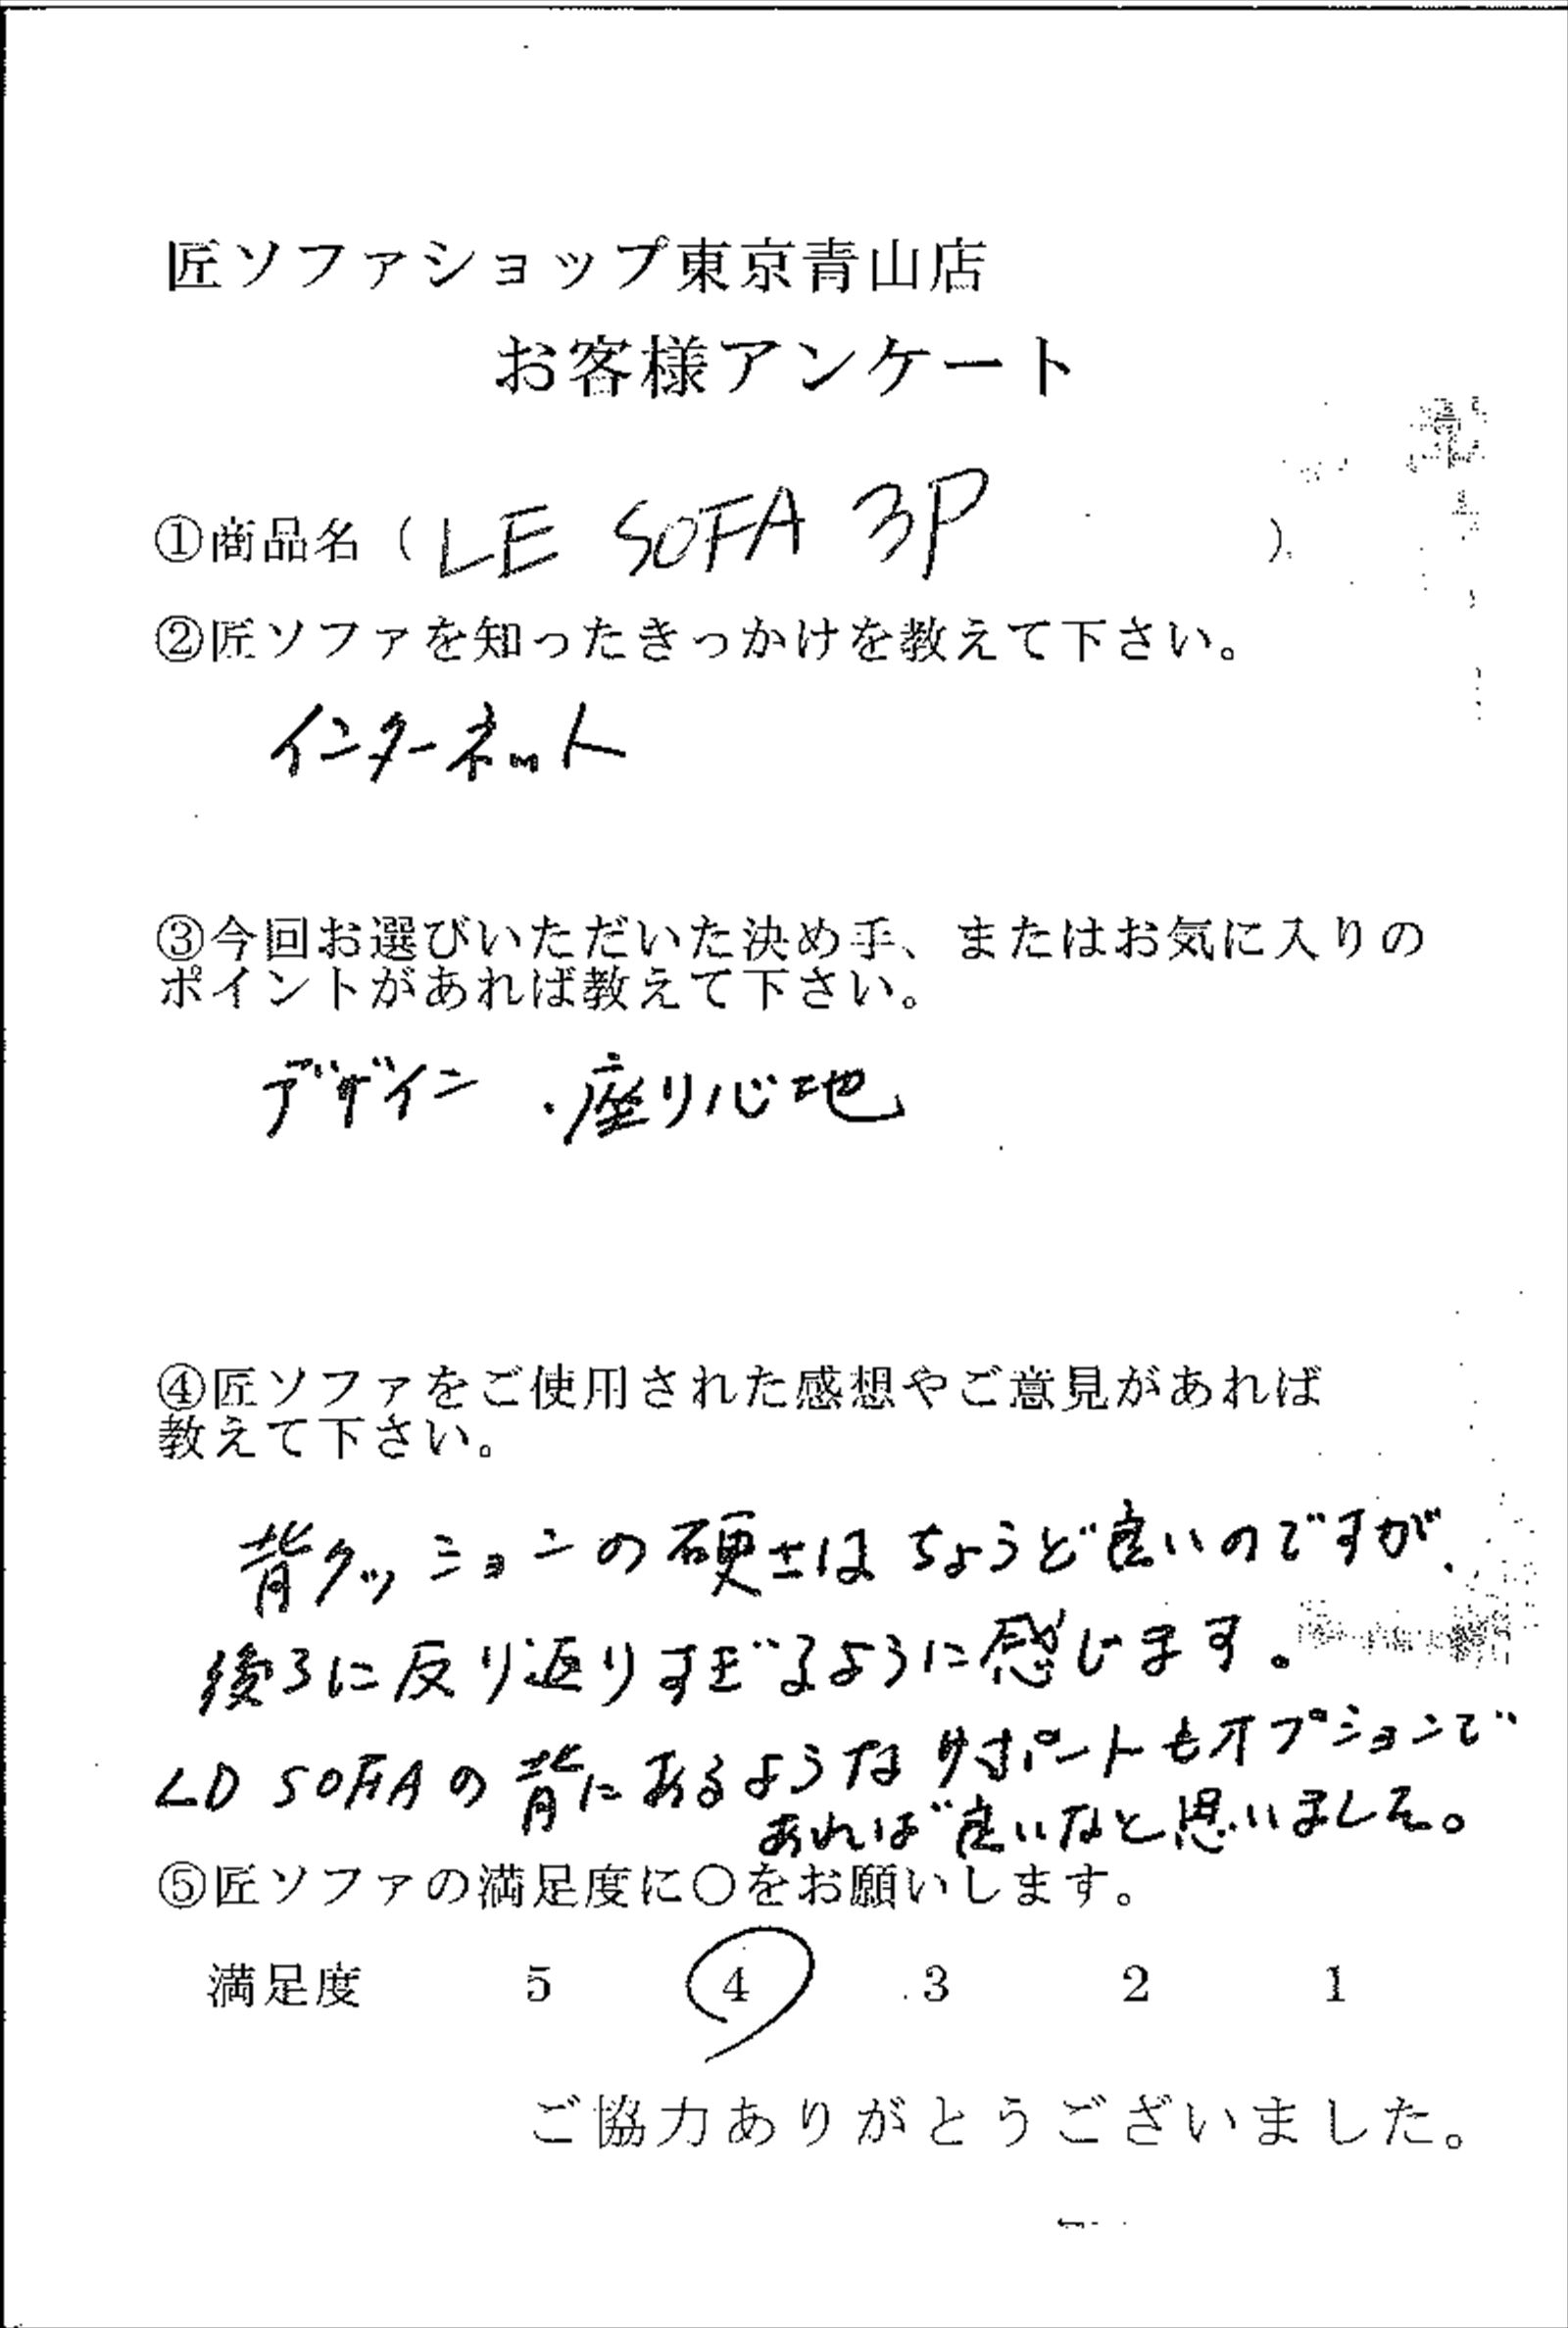 匠ソファショップ東京青山店
お客様アンケート
①商品名（LE SOFA 3P）
②匠ソファを知ったきっかけを教えて下さい。
インターネット
③今回お選びいただいた決め手、またはお気に入りの
ポイントがあれば教えて下さい。
デザイン・座り心地
④匠ソファをご使用された感想やご意見があれば
教えて下さい。
背クッションの硬さはちょうど良いのですが、
後ろに反り返りすぎるように感じます。
LD SOFAの背にあるようなサポートもオプションで
あれば良いなと思いました。
⑤匠ソファの満足度に〇をお願いします。
満足度 5 4 3 2 1
ご協力ありがとうございました。